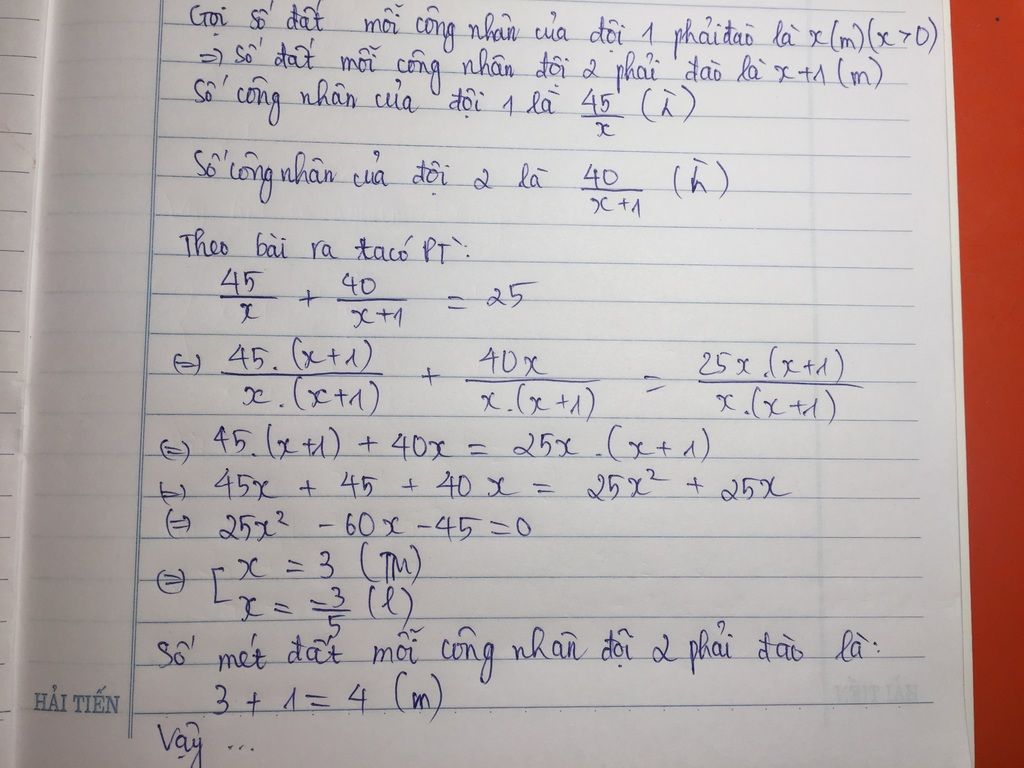 Gọi số đất mỗi công nhân của đội 1 phải đào là x(m)(x>0)
=> Số đất mỗi công nhân đội 2 phải đào là x+1 (m)
Số công nhân của đội 1 là 45/x
Số công nhân của đội 2 là 40/(x+1)
Theo bài ra ta có PT:
45/x + 40/(x+1) = 25
<=> 45.(x+1)/x.(x+1) + 40x/x.(x+1) = 25x.(x+1)/x.(x+1)
<=> 45.(x+1) + 40x = 25x.(x+1)
<=> 45x + 45 + 40x = 25x² + 25x
<=> 25x² - 60x - 45 = 0
<=> [ x = 3 (TM)
x = -3/5 (l)
Số mét đất mỗi công nhân đội 2 phải đào là:
3 + 1 = 4 (m)
Vậy ...
HẢI TIẾN